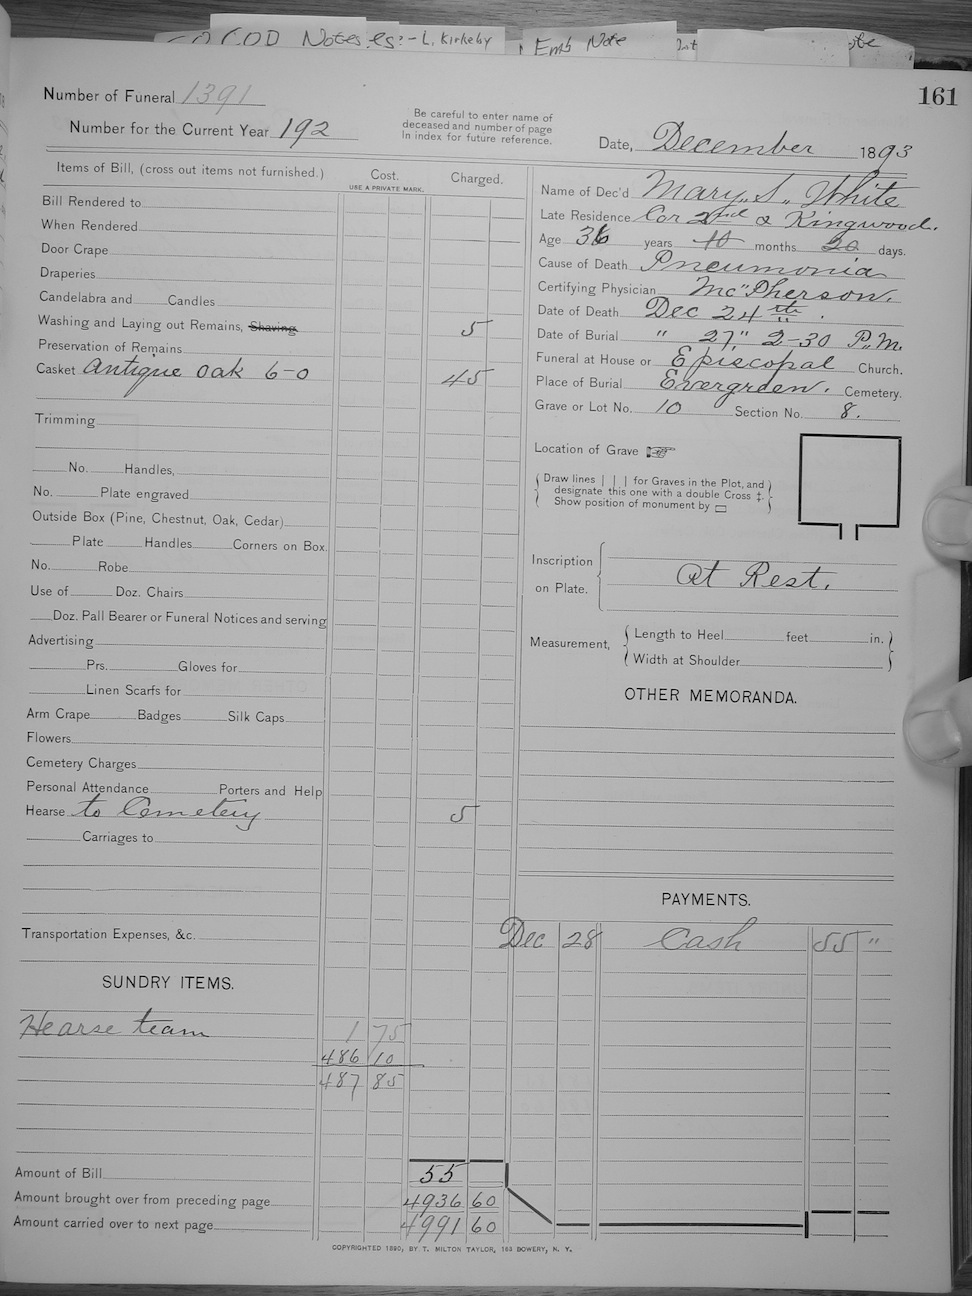 COD Notes es:- L. Kirkeby
Emb Note
161
Number of Funeral 1391
Number for the Current Year 192
Be careful to enter name of
deceased and number of page
in index for future reference.
Date, December 1893
Items of Bill, (cross out items not furnished.)
Cost.
USE A PRIVATE MARK.
Charged.
Bill Rendered to
When Rendered
Door Crape
Draperies
Candelabra and Candles
Washing and Laying out Remains, Shaving 5
Preservation of Remains
Casket Antique Oak 6-0 45
Trimming
No. Handles,
No. Plate engraved
Outside Box (Pine, Chestnut, Oak, Cedar)
Plate Handles Corners on Box.
No. Robe
Use of Doz. Chairs
Doz. Pall Bearer or Funeral Notices and serving
Advertising
Prs. Gloves for
Linen Scarfs for
Arm Crape Badges Silk Caps
Flowers
Cemetery Charges
Personal Attendance Porters and Help
Hearse to Cemetery 5
Carriages to
Transportation Expenses, &c.
SUNDRY ITEMS.
Hearse team 1 75
486 10
487 85
Amount of Bill 55
Amount brought over from preceding page 4936 60
Amount carried over to next page 4991 60
Name of Dec'd Mary. S. White
Late Residence Cor 2nd & Kingwood.
Age 36 years 10 months 20 days.
Cause of Death Pneumonia
Certifying Physician McPherson.
Date of Death Dec 24th.
Date of Burial " 27," 2-30 P.M.
Funeral at House or Episcopal Church.
Place of Burial Evergreen. Cemetery.
Grave or Lot No. 10 Section No. 8.
Location of Grave ☞
Draw lines | | | for Graves in the Plot, and
designate this one with a double Cross ‡.
Show position of monument by ▭
Inscription
on Plate.
At Rest.
Measurement,
Length to Heel feet in.
Width at Shoulder
OTHER MEMORANDA.
PAYMENTS.
Dec 28 Cash 55 "
COPYRIGHTED 1890, BY T. MILTON TAYLOR, 163 BOWERY, N. Y.